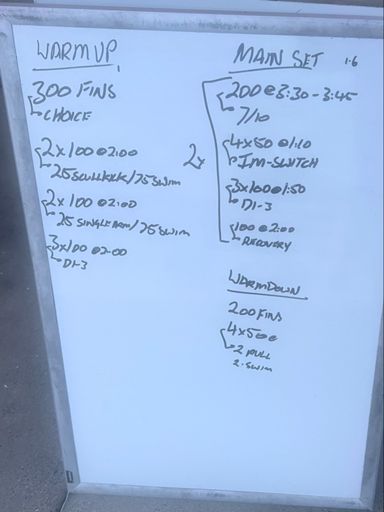 WARM UP
300 FINS
CHOICE
2x100@2:00
25 SCULL KICK/75 SWIM
2x100@2:00
25 SINGLE ARM/75 SWIM
3x100@2:00
D1-3
MAIN SET 1.6
2x
200@3:30-3:45
7/10
4x50@1:10
IM-SWITCH
3x100@1:50
D1-3
100@2:00
RECOVERY
WARMDOWN
200 FINS
4x50@
2 PULL
2 SWIM